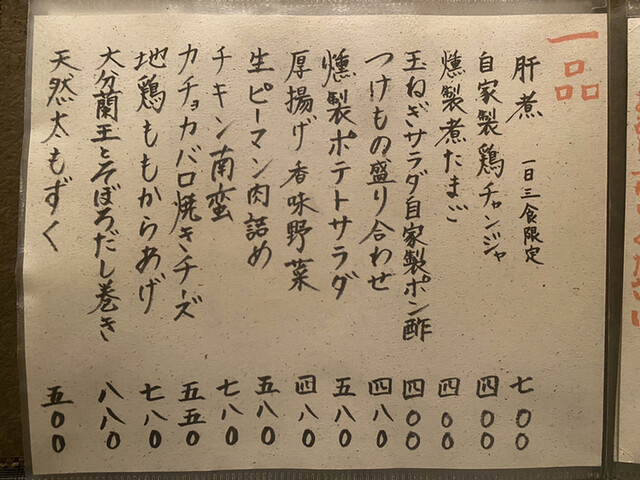 一品
肝煮 一日三食限定 七〇〇
自家製鶏チャンジャ 四〇〇
燻製煮たまご 四〇〇
玉ねぎサラダ自家製ポン酢 四〇〇
つけもの盛り合わせ 四八〇
燻製ポテトサラダ 五八〇
厚揚げ香味野菜 四八〇
生ピーマン肉詰め 五八〇
チキン南蛮 七八〇
カチョカバロ焼きチーズ 五五〇
地鶏ももからあげ 七八〇
大分蘭王とそぼろだし巻き 八八〇
天然太もずく 五〇〇